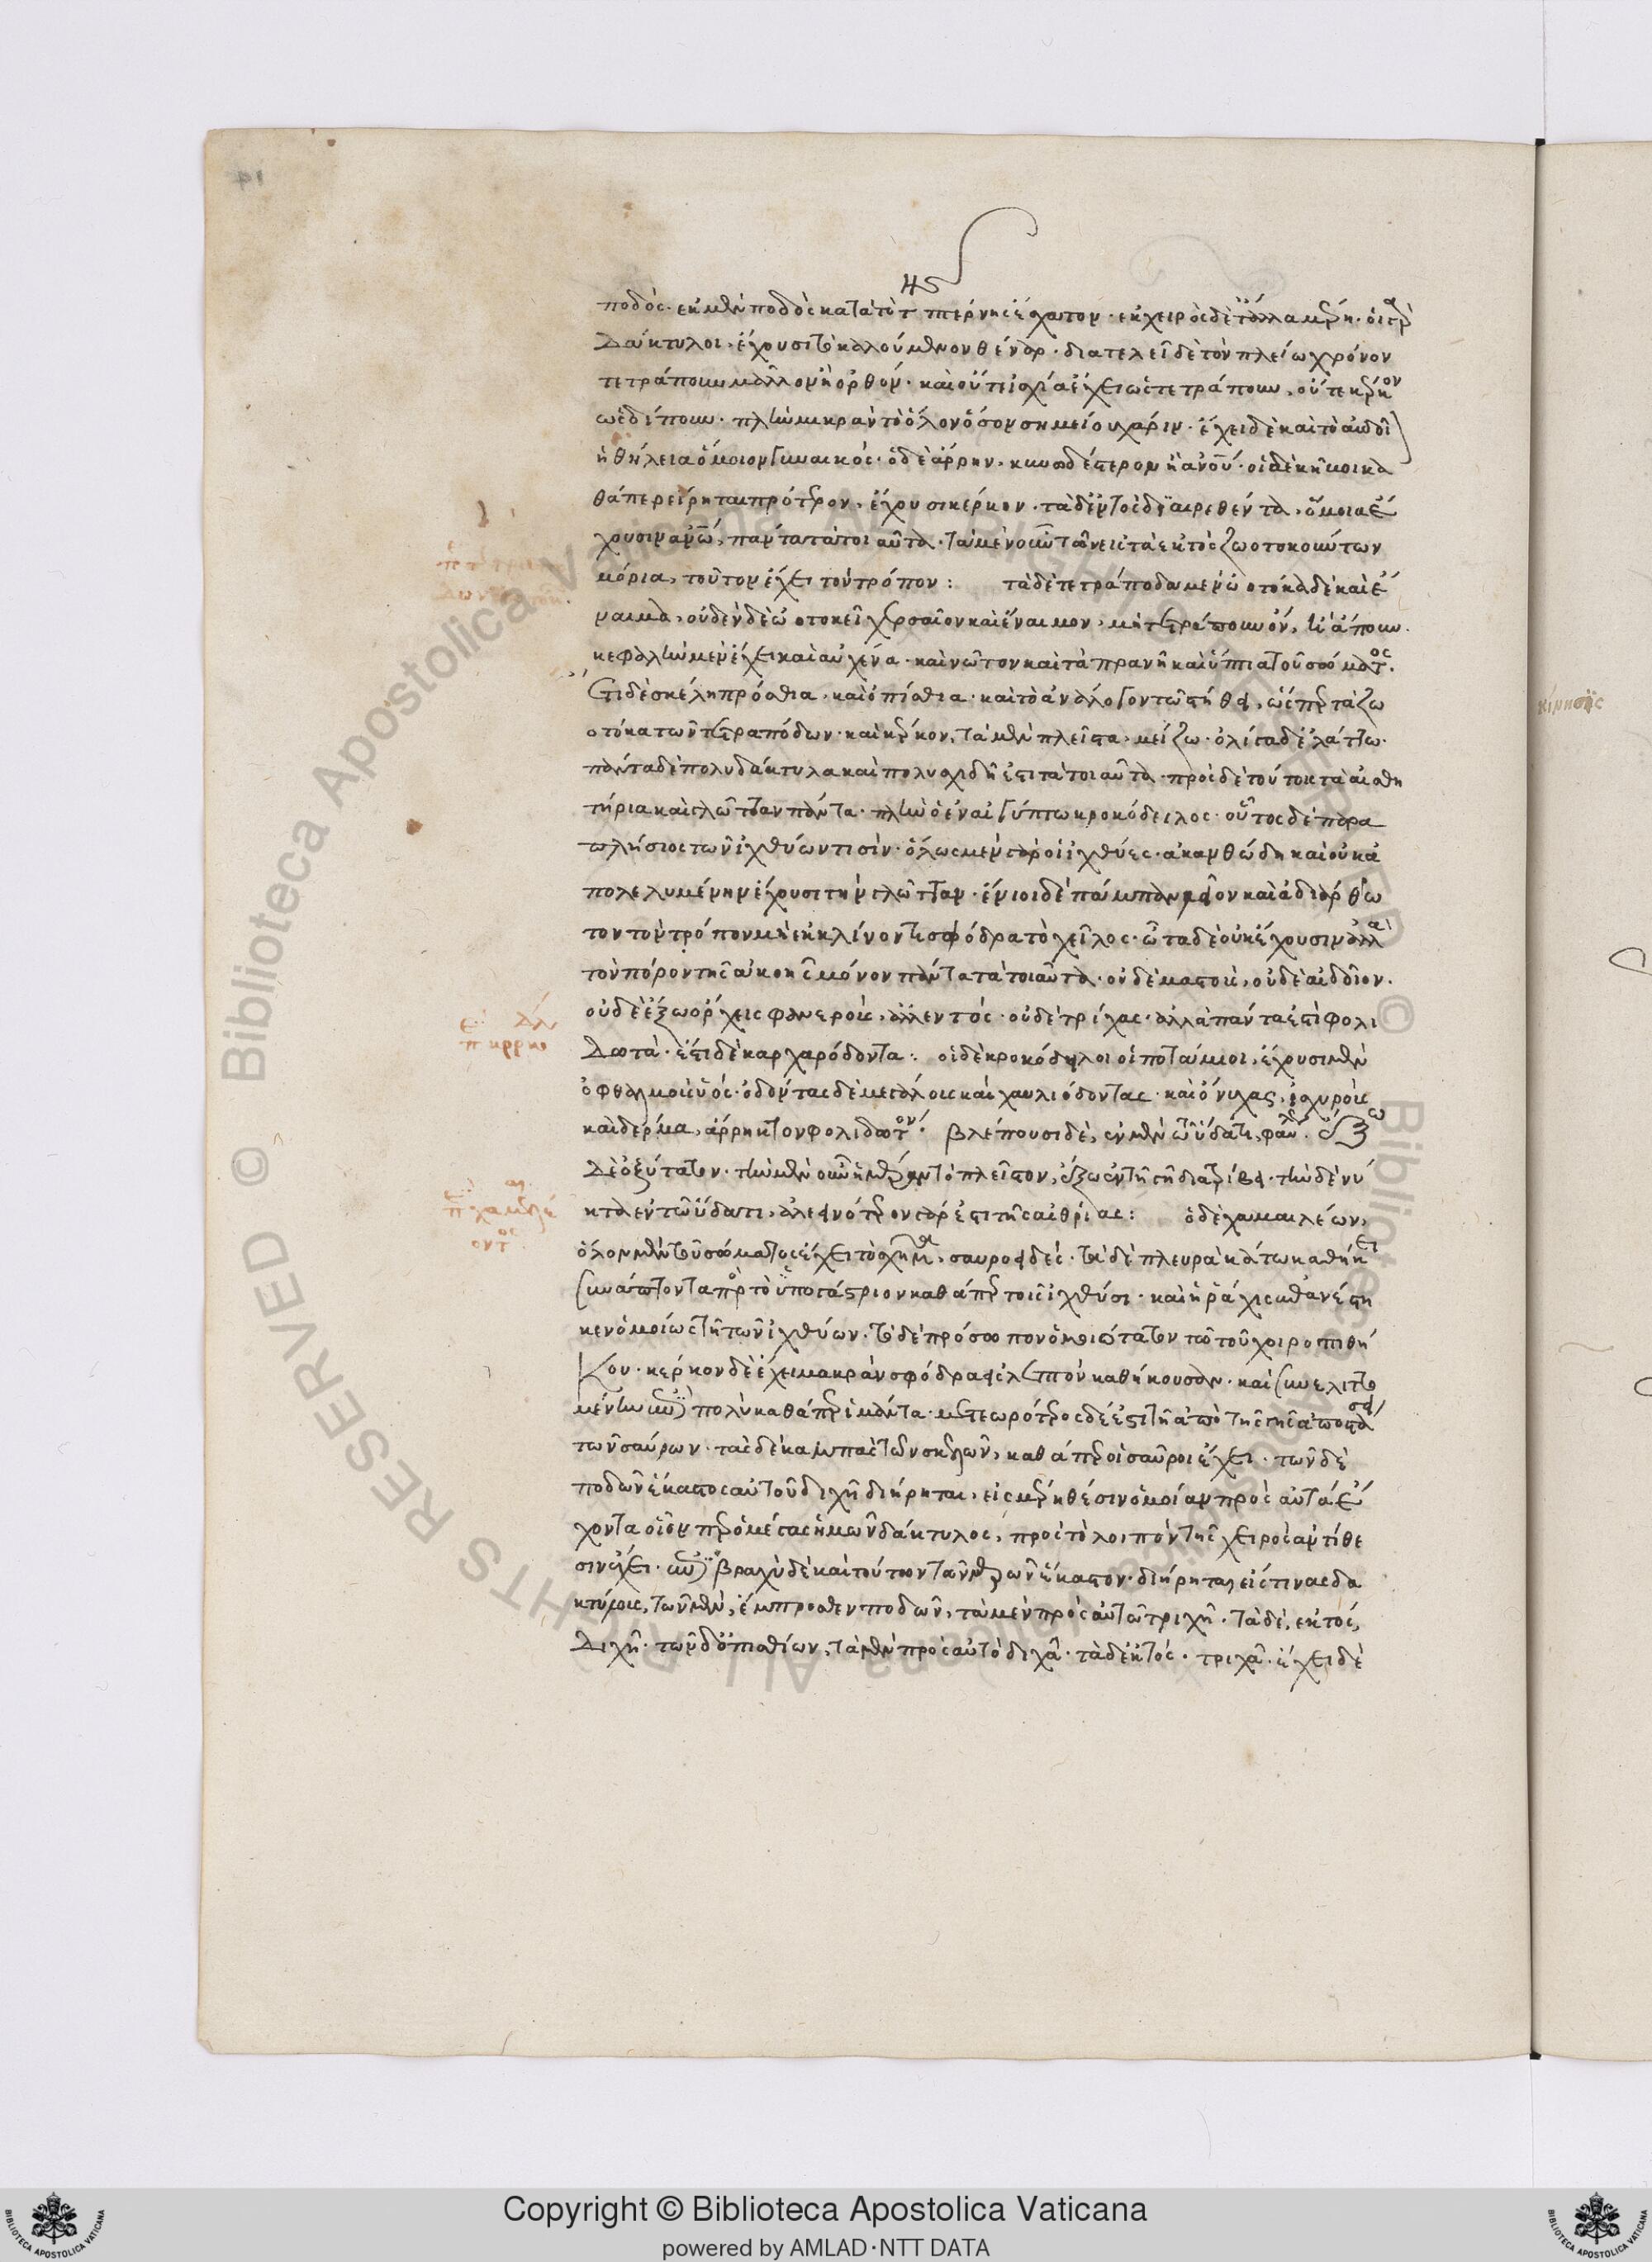 14
ποδός. ἐκ μὲν ποδὸς κατὰ τὸ τῆς πτέρνης ἔσχατον. ἐκ χειρὸς δὲ τἆλλα μέρη. οἱ γὰρ
δάκτυλοι, ἔχουσι τὸ καλούμενον θέναρ. διατελεῖ δὲ τὸν πλείω χρόνον
τετράπουν μᾶλλον ἢ ὀρθόν. καὶ οὔτε ἰσχία ἔχει ὡς τετράπουν, οὔτε κέρκον
ὡς δίπουν. πλὴν μικρὰν τὸ ὅλον ὅσον σημείου χάριν. ἔχει δὲ καὶ τὸ αἰδοῖ
ἡ θήλεια ὅμοιον γυναικός. ὁ δὲ ἄρρην, κυνωδέστερον ἢ ἀνου. οἱ δὲ κῆβοι κα
θάπερ εἴρηται πρότερον, ἔχουσι κέρκον. τὰ δ' ἐντὸς διαιρεθέντα, ὅμοια ἔ
χουσιν ἀνω, πάντα τὰ τοιαῦτα. τὰ μὲν οὖν τῶν εἰς τὸ ἐκτὸς ζωοτοκούντων
μόρια, τοῦτον ἔχει τὸν τρόπον: τὰ δὲ τετράποδα μὲν ὠοτόκα δὲ καὶ ἔ
ναιμα, οὐδὲν δὲ ὠοτοκεῖ χερσαῖον καὶ ἔναιμον, μὴ τετράπουν ὂν, ἢ ἄπουν.
κεφαλὴν μὲν ἔχει καὶ αὐχένα. καὶ νῶτον καὶ τὰ πρανῆ καὶ ὕπτια τοῦ σώματος.
ἔτι δὲ σκέλη πρόσθια, καὶ ὀπίσθια. καὶ τὸ ἀνάλογον τῶ στήθει, ὥσπερ τὰ ζω
οτόκα τῶν τετραπόδων. καὶ κέρκον, τὰ μὲν πλεῖστα, μείζω. ὀλίγα δ' ἐλάττω.
πάντα δὲ πολυδάκτυλα καὶ πολυσχιδῆ ἐστι τὰ τοιαῦτα. πρὸς δὲ τούτοις τὰ αἰσθη
τήρια καὶ γλῶτταν πάντα. πλὴν ὁ ἐν αἰγύπτω κροκόδειλος. οὗτος δὲ παρα
πλήσιος τῶν ἰχθύων τισίν. ὅλως μὲν γὰρ οἱ ἰχθύες. ἀκανθώδη καὶ οὐκ ἀ
πολελυμένην ἔχουσι τὴν γλῶτταν. ἔνιοι δὲ πάμπαν λεῖον καὶ ἀδιάρθρω
τον τὸν τρόπον μὴ ἐκκλίνοντι σφόδρα τὸ χεῖλος. ὦτα δὲ οὐκ ἔχουσιν ἀλλὰ
τὸν πόρον τῆς ἀκοῆς μόνον πάντα τὰ τοιαῦτα. οὐδὲ μαστοὺς, οὐδὲ αἰδοῖον.
οὐδὲ ἔξω ὄρχεις φανεροὺς, ἀλλ' ἐντός. οὐδὲ τρίχας. ἀλλὰ πάντα ἐστὶ φολι
δωτὰ. ἔτι δὲ καρχαρόδοντα: οἱ δὲ κροκόδειλοι οἱ ποτάμιοι, ἔχουσι μὲν
ὀφθαλμοὺς ὑός. ὀδόντας δὲ μεγάλους καὶ χαυλιόδοντας. καὶ ὄνυχας, ἰσχυροὺς
καὶ δέρμα, ἄρρηκτον φολιδωτόν. βλέπουσι δὲ, ἐν μὲν τῶ ὕδατι, φαύλως. ἔξω
δὲ ὀξύτατον. τὴν μὲν οὖν ἡμέραν τὸ πλεῖστον, ἔξω ἐν τῆ γῆ διατρίβει. τὴν δὲ νύ
κτα ἐν τῶ ὕδατι, ἀλεεινότερον γάρ ἐστι τῆς αἰθρίας: ὁ δὲ χαμαιλέων,
ὅλον μὲν τοῦ σώματος ἔχει τὸ σχῆμα, σαυροειδές. τὰ δὲ πλευρὰ κάτω καθήκει
συνάπτοντα πρὸς τὸ ὑπογάστριον καθάπερ τοῖς ἰχθύσι. καὶ ἡ ῥάχις ἐπανέστη
κεν ὁμοίως τῆ τῶν ἰχθύων. τὸ δὲ πρόσωπον ὁμοιότατον τῶ τοῦ χοιροπιθή
κου. κέρκον δὲ ἔχει μακρὰν σφόδρα εἰς λεπτὸν καθήκουσαν. καὶ συνελιττο
μένην ἐπὶ πολὺ καθάπερ ἱμάντα. μετεωρότερος δέ ἐστι τῆ ἀπὸ τῆς γῆς ἀποστάσει
τῶν σαύρων. τὰς δὲ καμπὰς τῶν σκελῶν, καθάπερ οἱ σαῦροι ἔχει. τῶν δὲ
ποδῶν ἕκαστος αὐτοῦ δίχῆ διήρηται, εἰς μέρη θέσιν ὁμοίαν πρὸς αὑτὰ ἔ
χοντα οἵαν περ ὁ μέγας ἡμῶν δάκτυλος, πρὸς τὸ λοιπὸν τῆς χειρὸς ἀντίθε
σιν ἔχει. ἐπὶ βραχὺ δὲ καὶ τούτων τῶν μερῶν ἕκαστον. διήρηται εἴς τινας δα
κτύλους, τῶν μὲν, ἔμπροσθεν ποδῶν, τὰ μὲν πρὸς αὐτῶ τριχῆ. τὰ δὲ, ἐκτός,
διχῆ. τῶν δ' ὀπισθίων, τὰ μὲν πρὸς αὑτὸ διχᾶ. τὰ δ' ἐκτός. τριχᾶ. ἔχει δὲ
Copyright © Biblioteca Apostolica Vaticana
powered by AMLAD·NTT DATA